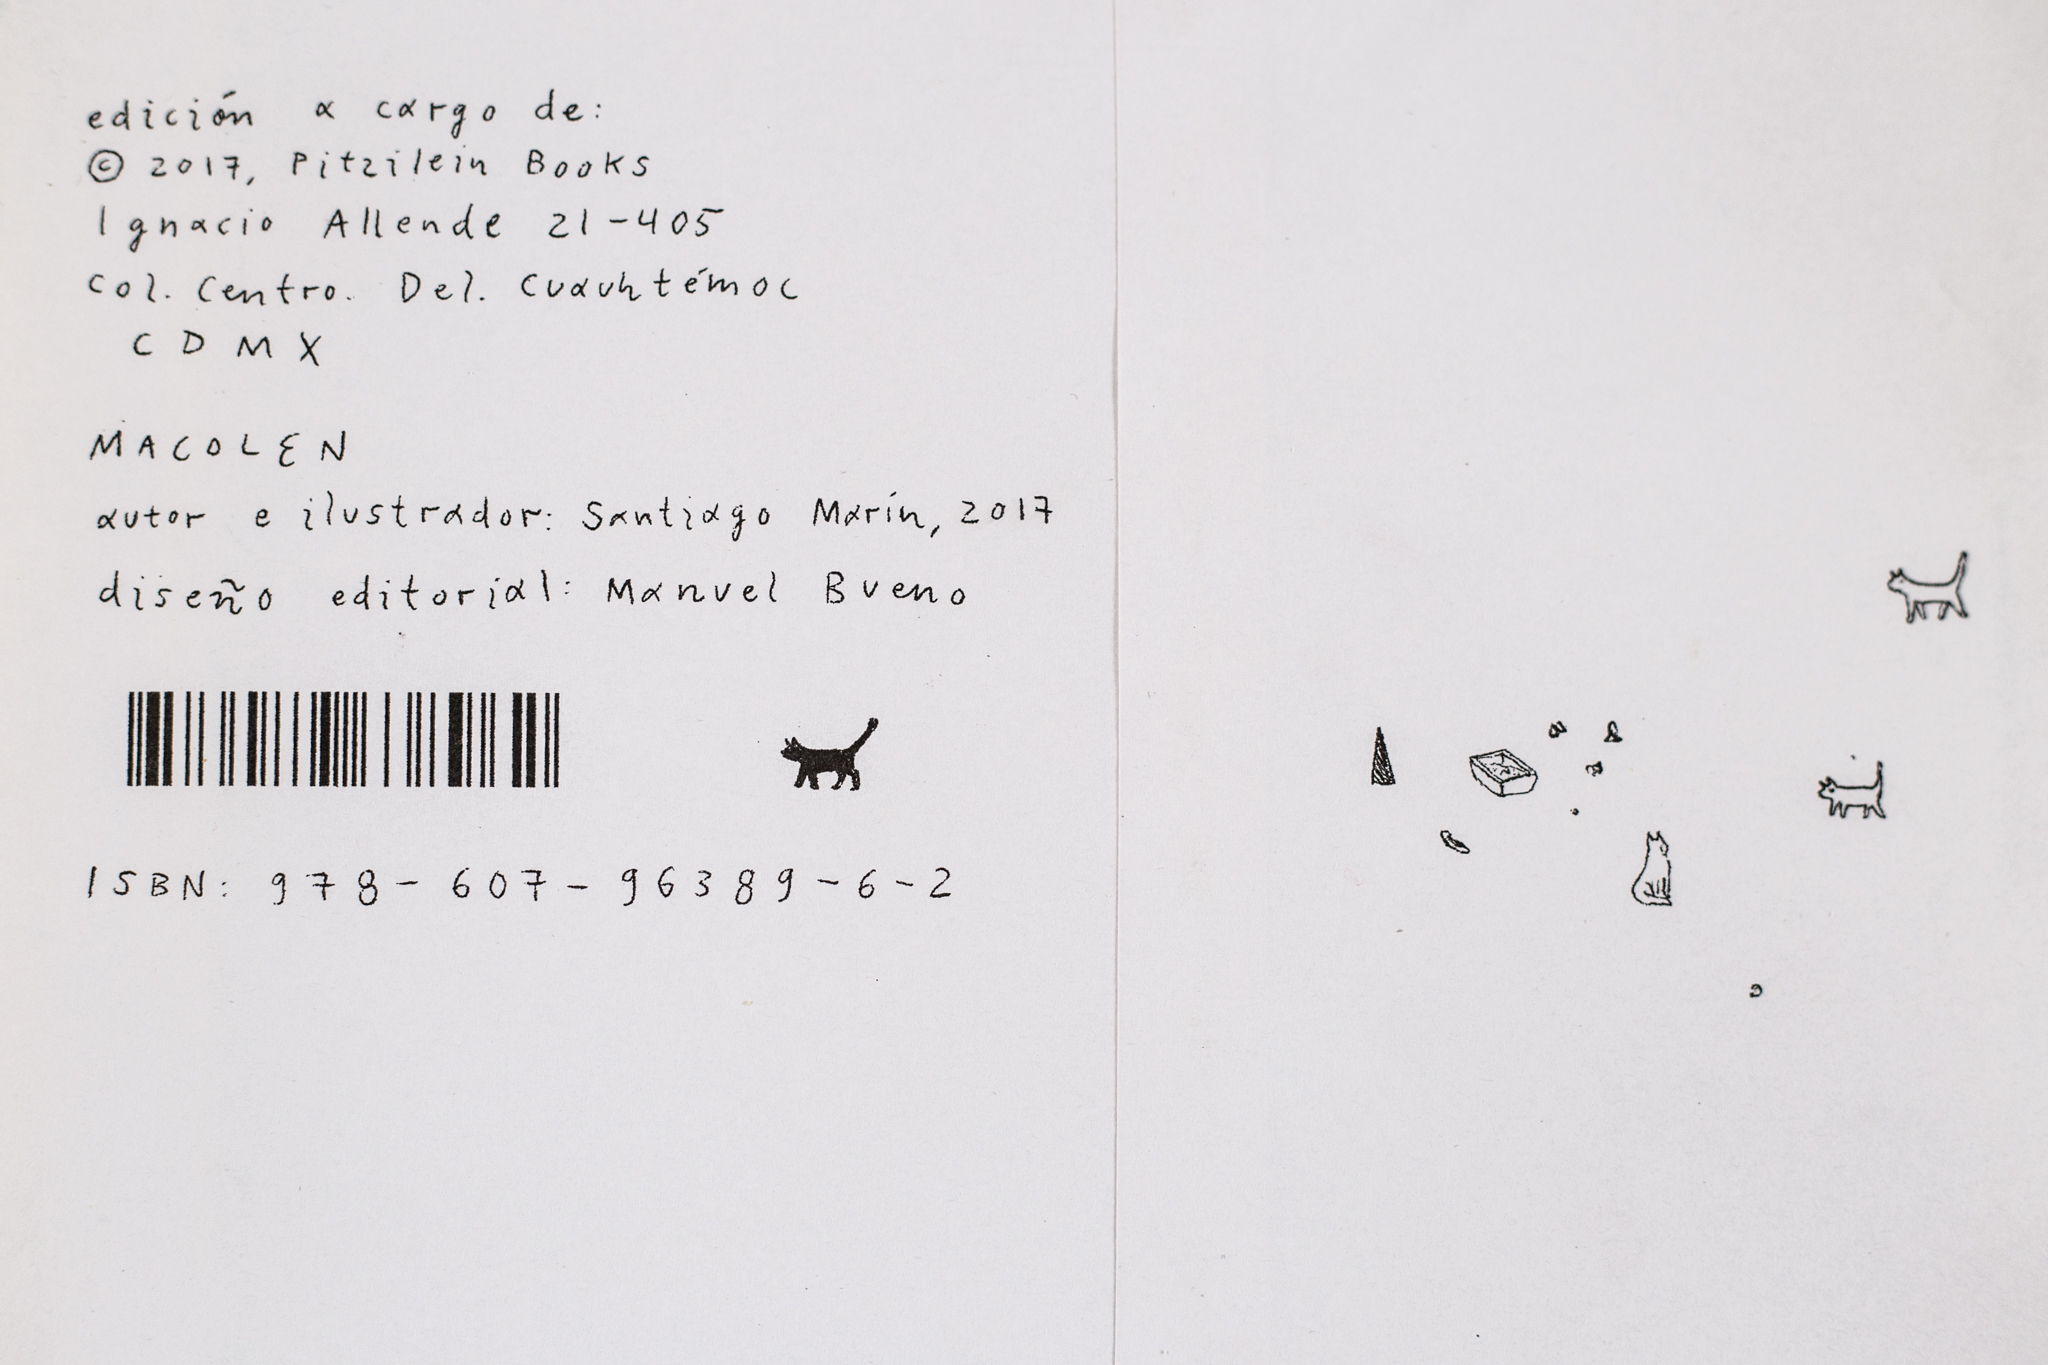 edición a cargo de:
© 2017, Pitzilein Books
Ignacio Allende 21-405
col. Centro. Del. Cuauhtémoc
CDMX
MACOLEN
autor e ilustrador: Santiago Marín, 2017
diseño editorial: Manuel Bueno
ISBN: 978-607-96389-6-2